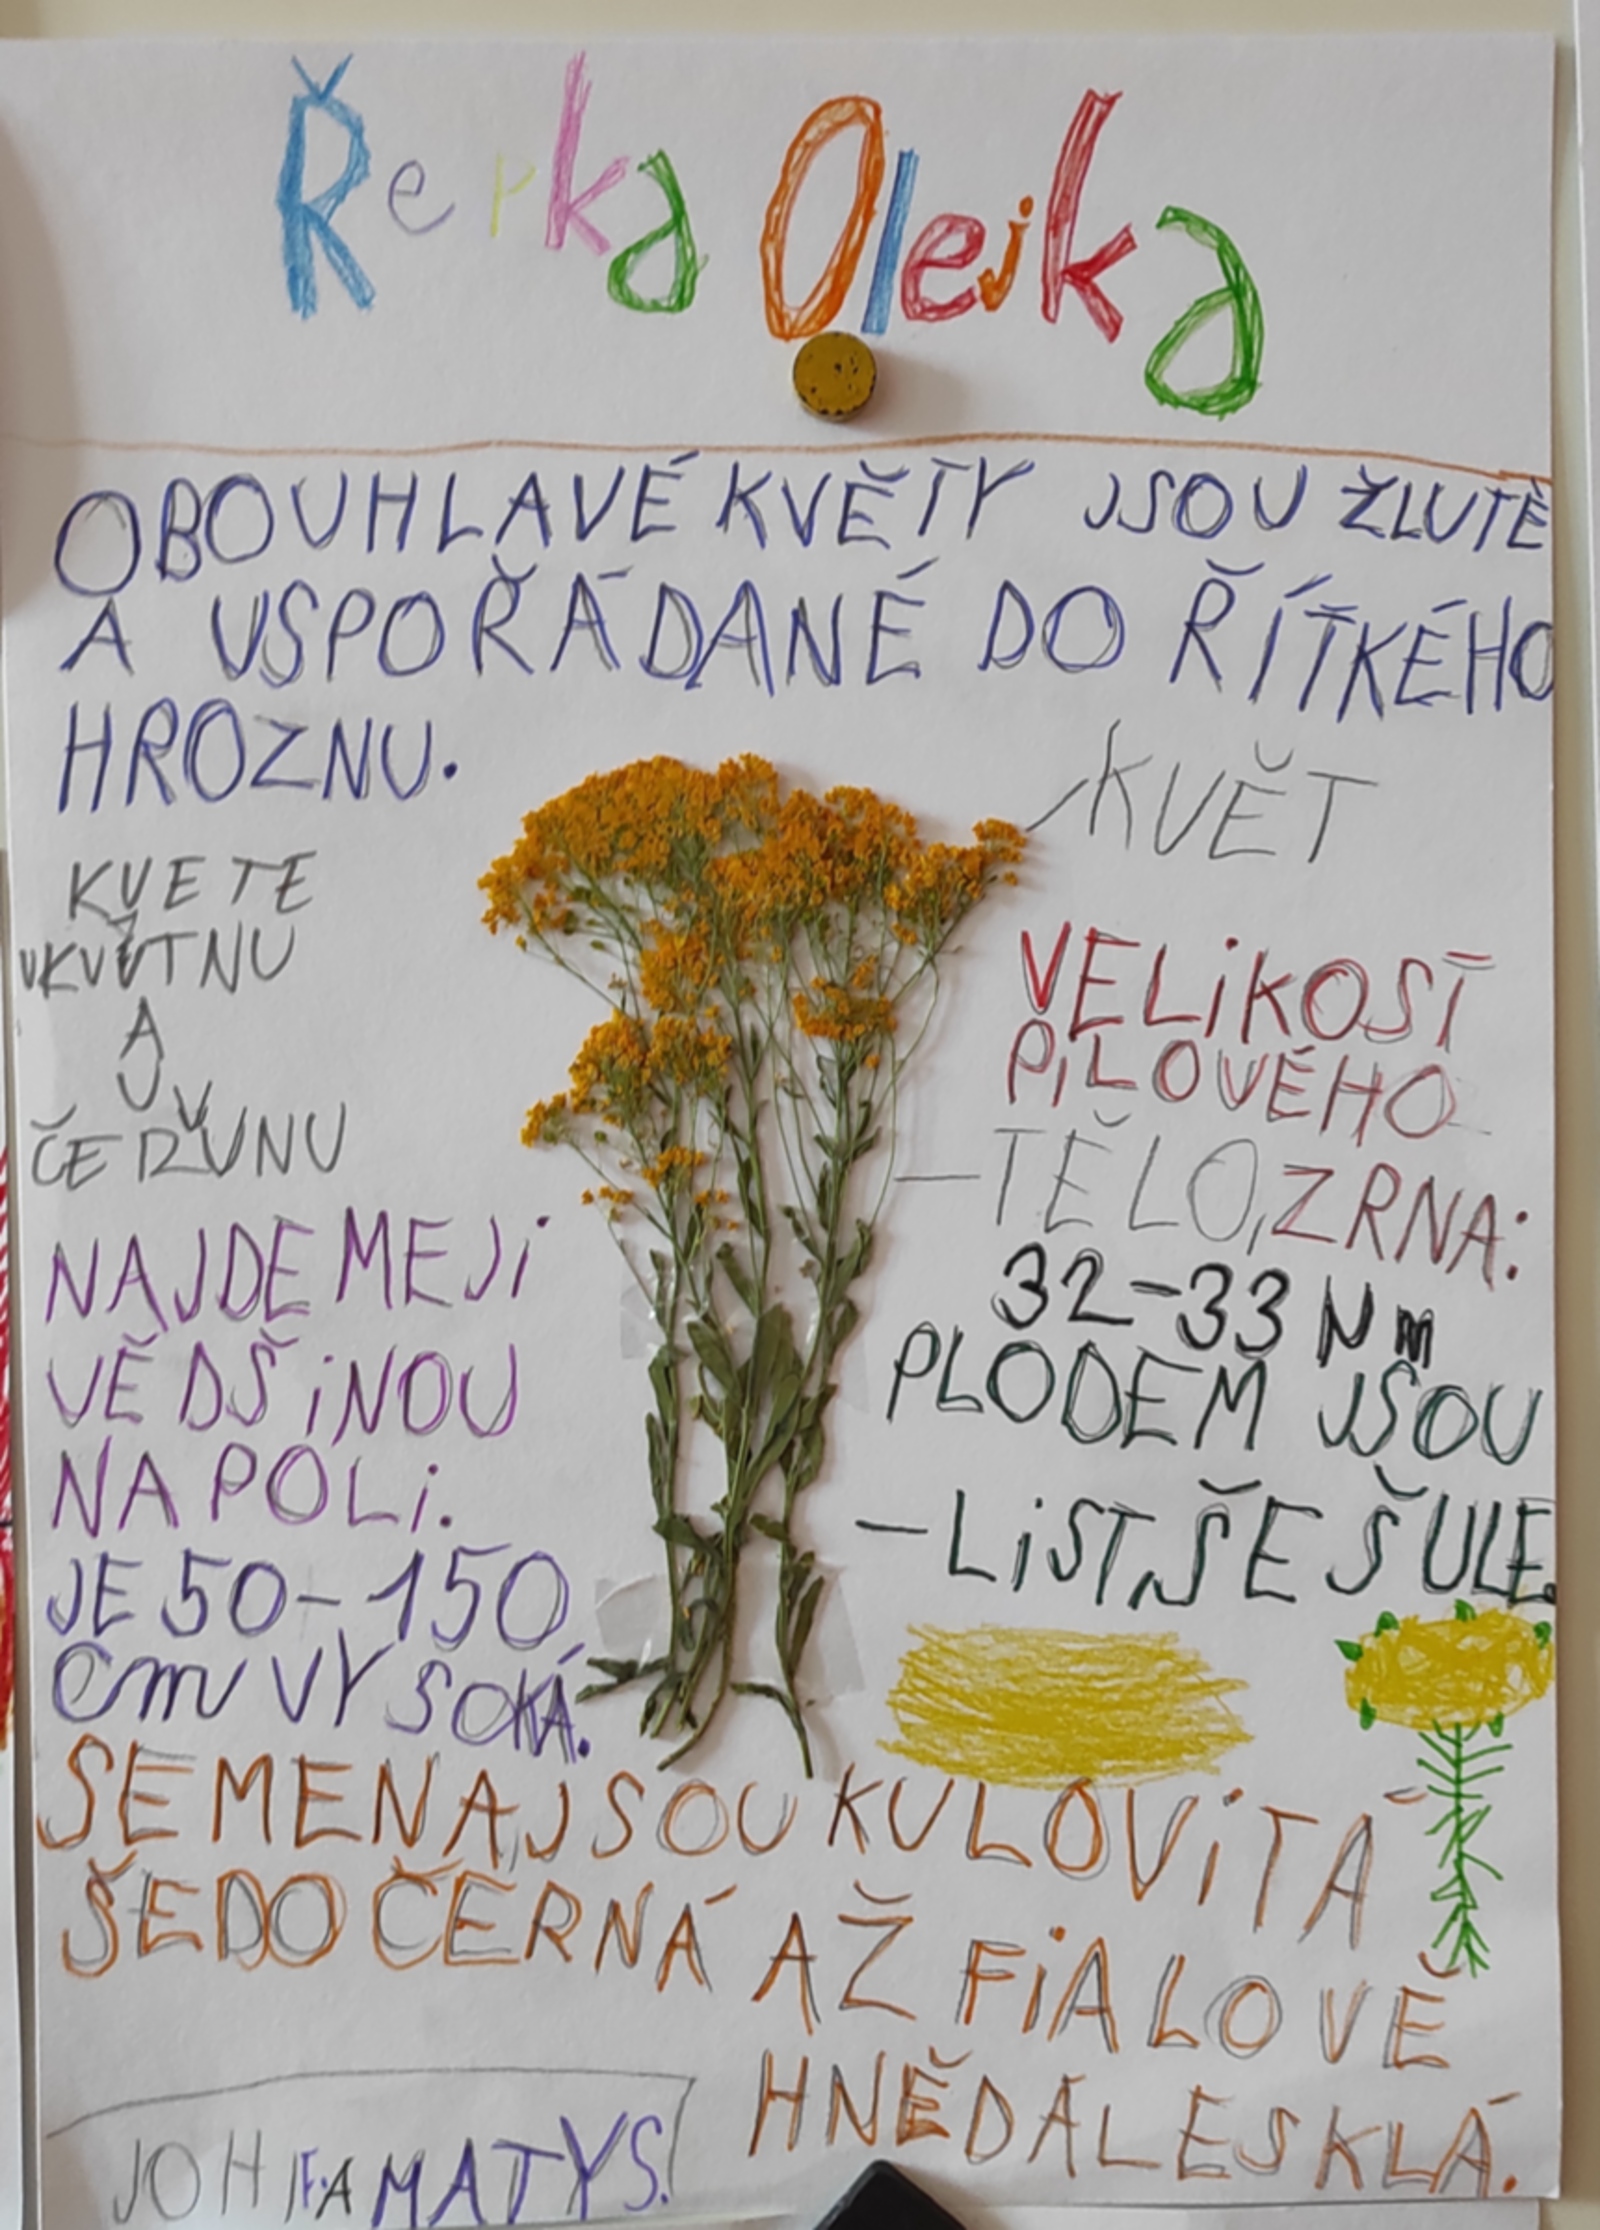 Řepka Olejka
OBOUHLAVÉ KVĚTY JSOU ŽLUTÉ
A USPOŘÁDANÉ DO ŘÍTKÉHO
HROZNU.
KVĚT
KVETE
VKVĚTNU
A
V
ČERVNU
NAJDEMEJI
VĚDŠINOU
NA POLI.
JE 50-150
cm VYSOKÁ.
VELIKOST
PILOVÉHO
-TĚLO,ZRNA:
32-33 Nm
PLODEM JSOU
-LIST,ŠEŠULE.
SEMENAJSOU KULOVITÁ
ŠEDOČERNÁ AŽ FIALOVĚ
HNĚDALESKLÁ.
MATYS.